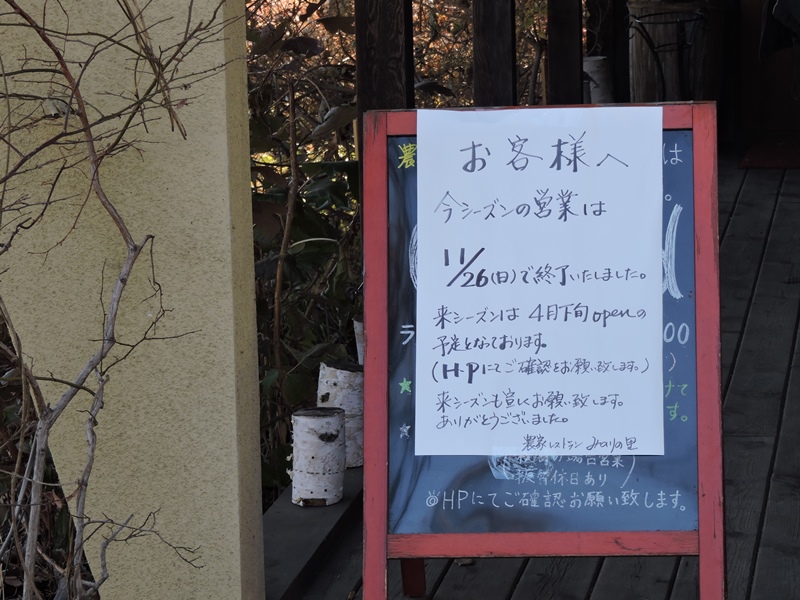 お客様へ
今シーズンの営業は
11/26(日)で終了いたしました。
来シーズンは 4月下旬openの
予定となっております。
(HPにてご確認をお願い致します。)
来シーズンも宜しくお願い致します。
ありがとうございました。
農家レストラン みのりの里
農
は
ラ
00
す。
日営業
振替休日あり
◎HPにてご確認お願い致します。